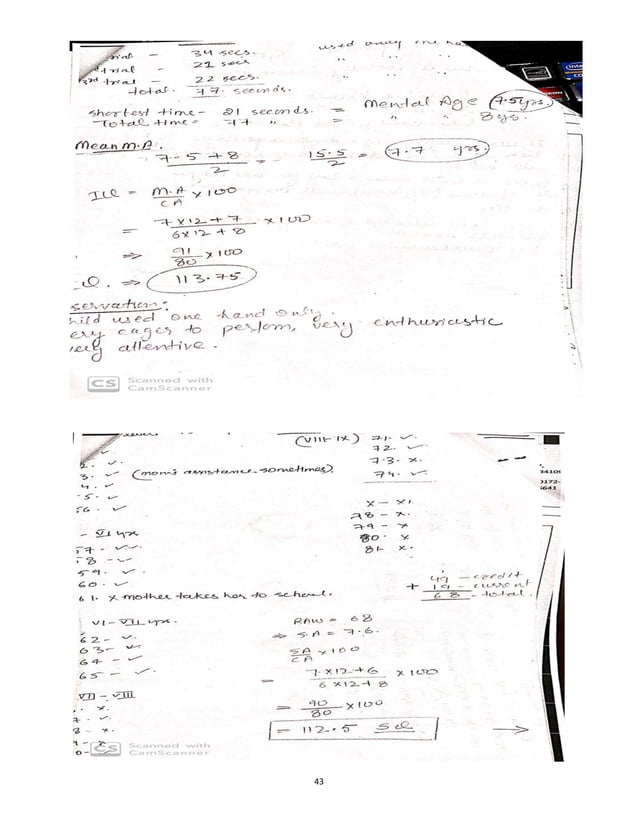 trial - 34 secs. used only one
trial - 21 secs " "
3rd trial - 22 secs. " "
total. 77 seconds.
Shortest time - 21 seconds. = Mental Age 7.5yrs.
Total time - 77 " = " " 8ys.
Mean M.A.
7.5+8/2 = 15.5/2 = 7.7 yrs.
= M.A/CA x100
= 7x12+7/6x12+8 x100
⇒ 91/80 x100
⇒ 113.75
servation:
hild used one hand only.
ery eager to perform, very enthusiastic
very attentive.
CS Scanned with
CamScanner
(VIII-IX) 71. ✓.
2. ✓. 72. ✓.
3. ✓ (mom's assistance sometimes) 73. x.
4. ✓ 74. ✓.
5. ✓
56. ✓ X - XI.
78 - x
- VI yrs 79 - x
57. ✓ 80. x
58 - ✓ 81. x.
59. ✓
60. ✓ 49 - credit
61. x mother takes her to school. + 19 - current
68 - total.
VI - VII yrs. RAW = 68
62 - ✓. ⇒ SA = 7.6.
63 - ✓
64 - ✓ SA/CA x100
65 - ✓ = 7x12+6/6x12+8 x100
VII - VIII
. x. = 90/80 x100
7. ✓
8 - x. = 112.5
9 - x
0 -
CS Scanned with
CamScanner
43